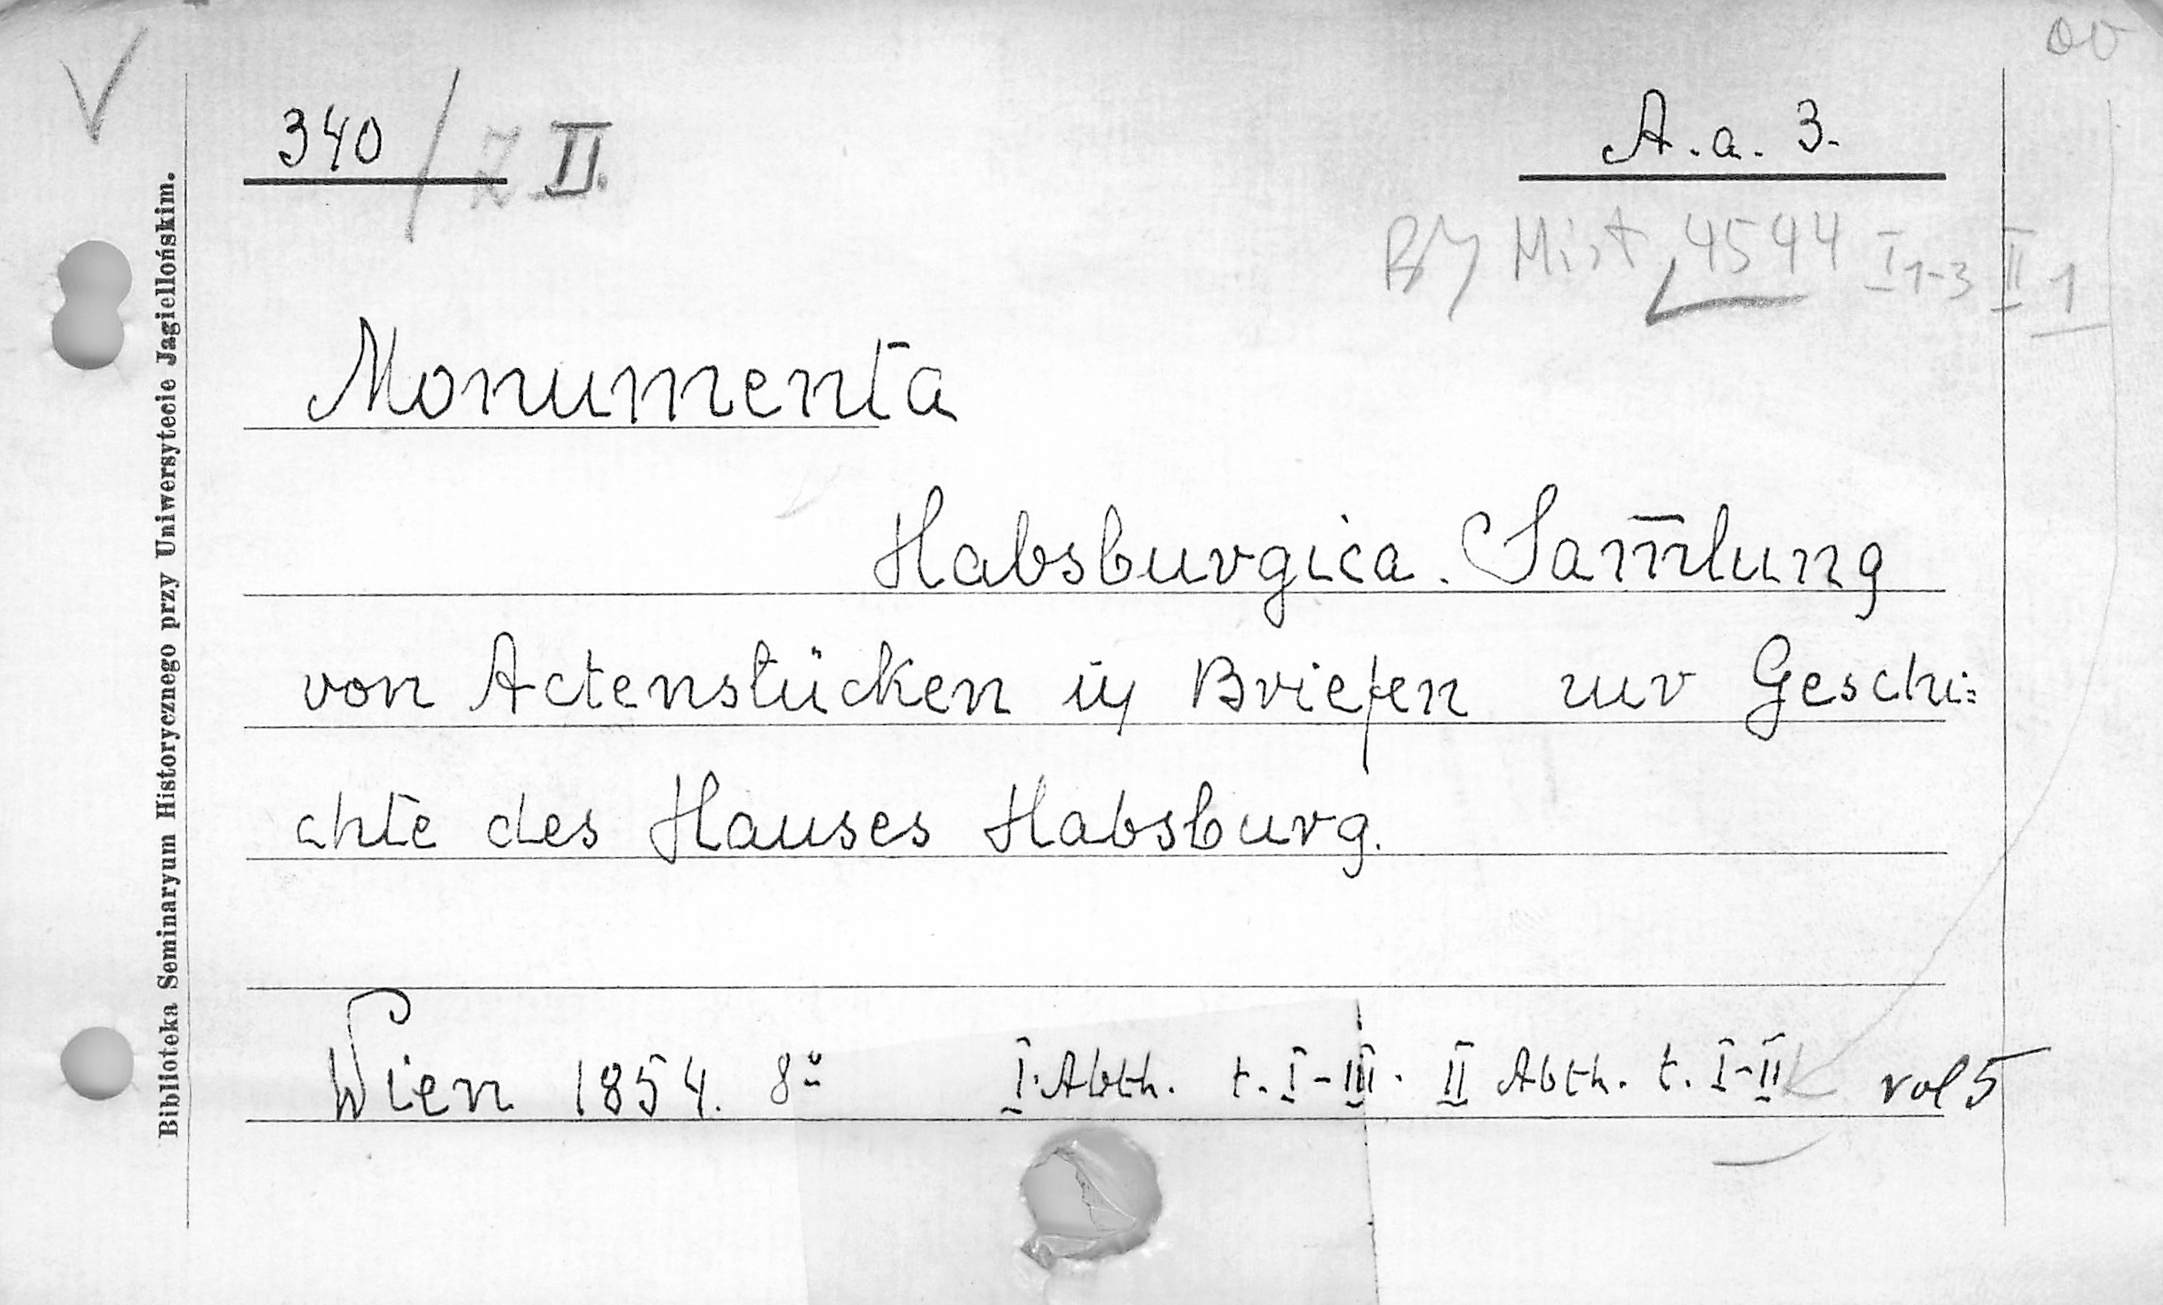 340 / Z II.
A. a. 3.
BJ Hist 4594 I 1-3 II 1
Monumenta
Habsburgica. Sam̅lung
von Actenstücken u Briefen zur Geschi=
chte des Hauses Habsburg.
Wien 1854. 8º I. Abth. t. I-III. II Abth. t. I-II vol 5
Biblioteka Seminaryum Historycznego przy Uniwersytecie Jagiellońskim.